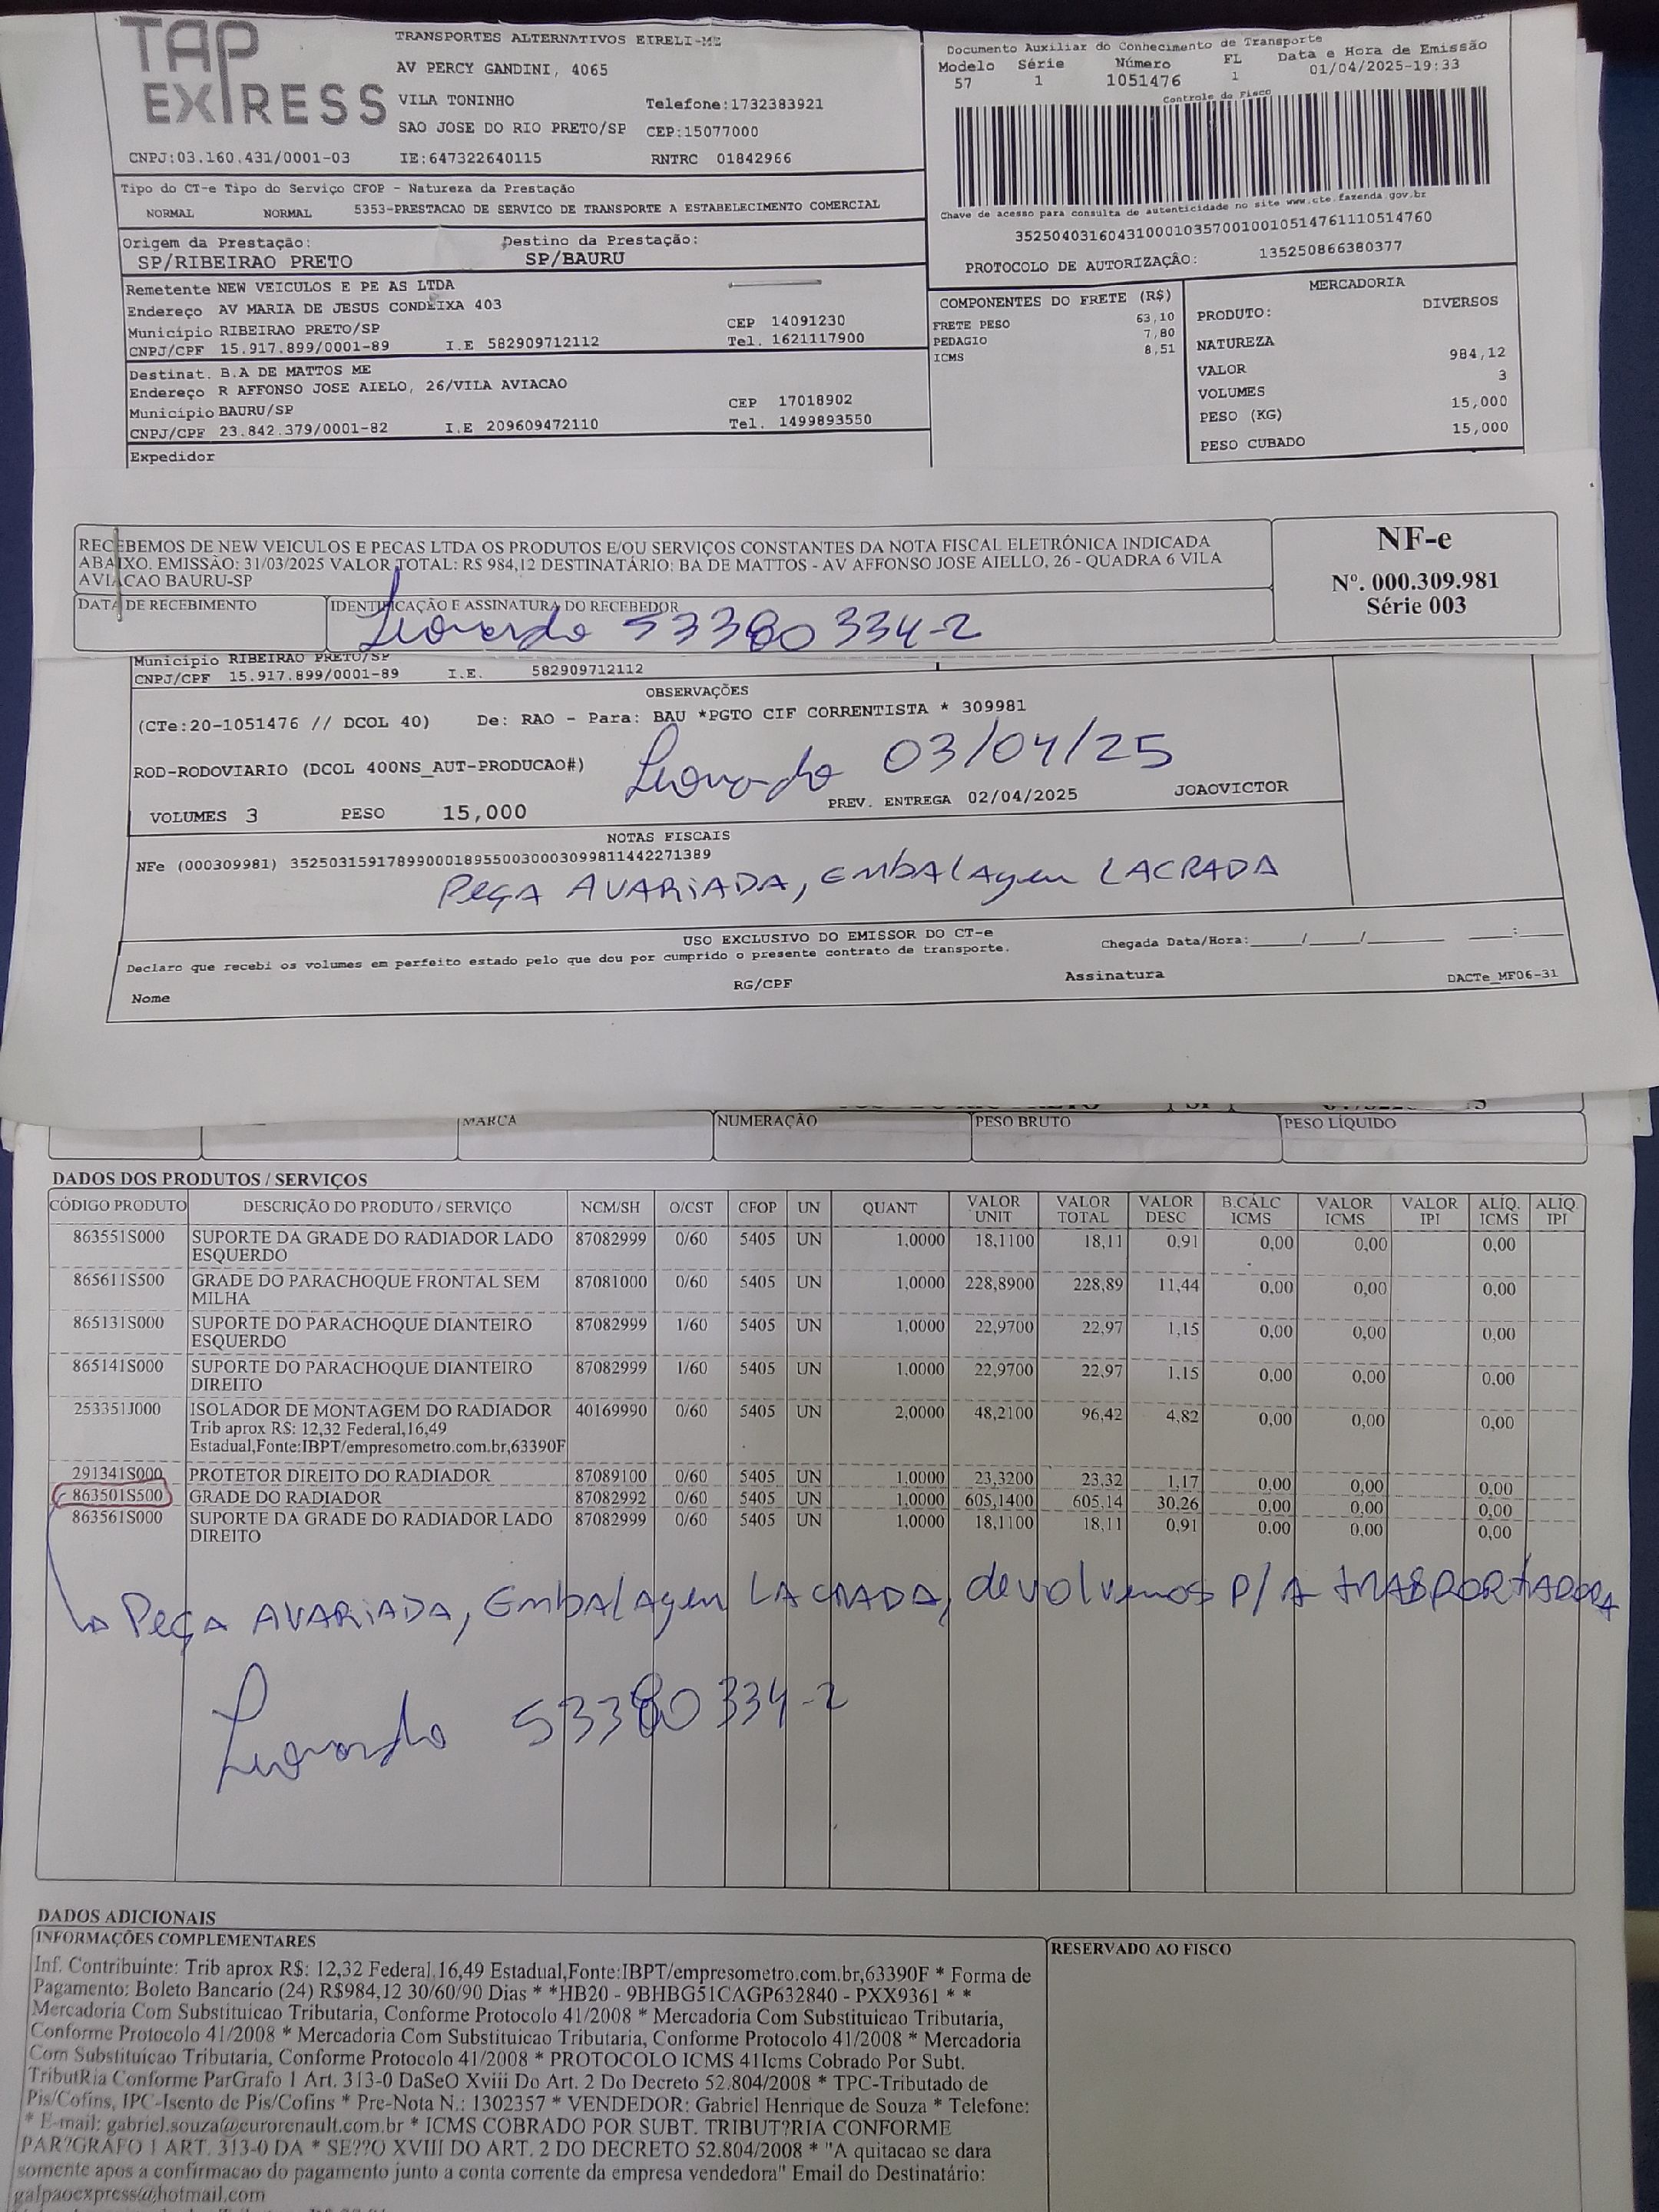 TAP EXPRESS
TRANSPORTES ALTERNATIVOS EIRELI-ME
AV PERCY GANDINI, 4065
VILA TONINHO Telefone:1732383921
SAO JOSE DO RIO PRETO/SP CEP:15077000
CNPJ:03.160.431/0001-03 IE:647322640115 RNTRC 01842966
Documento Auxiliar do Conhecimento de Transporte
Modelo Série Número FL Data e Hora de Emissão
57 1 1051476 1 01/04/2025-19:33
Controle do Fisco
Chave de acesso para consulta de autenticidade no site www.cte.fazenda.gov.br
35250403160431000103570010010514761110514760
PROTOCOLO DE AUTORIZAÇÃO: 135250866380377
Tipo do CT-e Tipo do Serviço CFOP - Natureza da Prestação
NORMAL NORMAL 5353-PRESTACAO DE SERVICO DE TRANSPORTE A ESTABELECIMENTO COMERCIAL
Origem da Prestação: Destino da Prestação:
SP/RIBEIRAO PRETO SP/BAURU
Remetente NEW VEICULOS E PE AS LTDA
Endereço AV MARIA DE JESUS CONDEIXA 403
Município RIBEIRAO PRETO/SP CEP 14091230
CNPJ/CPF 15.917.899/0001-89 I.E 582909712112 Tel. 1621117900
Destinat. B.A DE MATTOS ME
Endereço R AFFONSO JOSE AIELO, 26/VILA AVIACAO
Município BAURU/SP CEP 17018902
CNPJ/CPF 23.842.379/0001-82 I.E 209609472110 Tel. 1499893550
Expedidor
COMPONENTES DO FRETE (R$)
FRETE PESO 63,10
PEDAGIO 7,80
ICMS 8,51
MERCADORIA
PRODUTO: DIVERSOS
NATUREZA
VALOR 984,12
VOLUMES 3
PESO (KG) 15,000
PESO CUBADO 15,000
RECEBEMOS DE NEW VEICULOS E PECAS LTDA OS PRODUTOS E/OU SERVIÇOS CONSTANTES DA NOTA FISCAL ELETRÔNICA INDICADA
ABAIXO. EMISSÃO: 31/03/2025 VALOR TOTAL: R$ 984,12 DESTINATÁRIO: BA DE MATTOS - AV AFFONSO JOSE AIELLO, 26 - QUADRA 6 VILA
AVIACAO BAURU-SP
DATA DE RECEBIMENTO IDENTIFICAÇÃO E ASSINATURA DO RECEBEDOR
Leonardo 53380334-2
NF-e
Nº. 000.309.981
Série 003
Município RIBEIRAO PRETO/SP
CNPJ/CPF 15.917.899/0001-89 I.E. 582909712112
OBSERVAÇÕES
(CTe:20-1051476 // DCOL 40) De: RAO - Para: BAU *PGTO CIF CORRENTISTA * 309981
ROD-RODOVIARIO (DCOL 400NS_AUT-PRODUCAO#)
Leonardo 03/04/25
VOLUMES 3 PESO 15,000 PREV. ENTREGA 02/04/2025 JOAOVICTOR
NOTAS FISCAIS
NFe (000309981) 35250315917899000189550030003099811442271389
Peça AVARIADA, EmbALAgem LACRADA
USO EXCLUSIVO DO EMISSOR DO CT-e
Declaro que recebi os volumes em perfeito estado pelo que dou por cumprido o presente contrato de transporte. Chegada Data/Hora:____/____/____ ____:____
Nome RG/CPF Assinatura DACTe_MF06-31
MARCA NUMERAÇÃO PESO BRUTO PESO LÍQUIDO
DADOS DOS PRODUTOS / SERVIÇOS
CÓDIGO PRODUTO DESCRIÇÃO DO PRODUTO / SERVIÇO NCM/SH O/CST CFOP UN QUANT VALOR UNIT VALOR TOTAL VALOR DESC B.CÁLC ICMS VALOR ICMS VALOR IPI ALÍQ. ICMS ALÍQ. IPI
863551S000 SUPORTE DA GRADE DO RADIADOR LADO 87082999 0/60 5405 UN 1,0000 18,1100 18,11 0,91 0,00 0,00 0,00
ESQUERDO
865611S500 GRADE DO PARACHOQUE FRONTAL SEM 87081000 0/60 5405 UN 1,0000 228,8900 228,89 11,44 0,00 0,00 0,00
MILHA
865131S000 SUPORTE DO PARACHOQUE DIANTEIRO 87082999 1/60 5405 UN 1,0000 22,9700 22,97 1,15 0,00 0,00 0,00
ESQUERDO
865141S000 SUPORTE DO PARACHOQUE DIANTEIRO 87082999 1/60 5405 UN 1,0000 22,9700 22,97 1,15 0,00 0,00 0,00
DIREITO
253351J000 ISOLADOR DE MONTAGEM DO RADIADOR 40169990 0/60 5405 UN 2,0000 48,2100 96,42 4,82 0,00 0,00 0,00
Trib aprox R$: 12,32 Federal,16,49
Estadual,Fonte:IBPT/empresometro.com.br,63390F
291341S000 PROTETOR DIREITO DO RADIADOR 87089100 0/60 5405 UN 1,0000 23,3200 23,32 1,17 0,00 0,00 0,00
863501S500 GRADE DO RADIADOR 87082992 0/60 5405 UN 1,0000 605,1400 605,14 30,26 0,00 0,00 0,00
863561S000 SUPORTE DA GRADE DO RADIADOR LADO 87082999 0/60 5405 UN 1,0000 18,1100 18,11 0,91 0,00 0,00 0,00
DIREITO
Peça AVARIADA, EmbALAgem LACRADA, devolvemos P/A tRASPORtADORA
Leonardo 53380334-2
DADOS ADICIONAIS
INFORMAÇÕES COMPLEMENTARES
Inf. Contribuinte: Trib aprox R$: 12,32 Federal,16,49 Estadual,Fonte:IBPT/empresometro.com.br,63390F * Forma de
Pagamento: Boleto Bancario (24) R$984,12 30/60/90 Dias * *HB20 - 9BHBG51CAGP632840 - PXX9361 * *
Mercadoria Com Substituicao Tributaria, Conforme Protocolo 41/2008 * Mercadoria Com Substituicao Tributaria,
Conforme Protocolo 41/2008 * Mercadoria Com Substituicao Tributaria, Conforme Protocolo 41/2008 * Mercadoria
Com Substituicao Tributaria, Conforme Protocolo 41/2008 * PROTOCOLO ICMS 41Icms Cobrado Por Subt.
TributRia Conforme ParGrafo 1 Art. 313-0 DaSeO Xviii Do Art. 2 Do Decreto 52.804/2008 * TPC-Tributado de
Pis/Cofins, IPC-Isento de Pis/Cofins * Pre-Nota N.: 1302357 * VENDEDOR: Gabriel Henrique de Souza * Telefone:
* E-mail: gabriel.souza@eurorenault.com.br * ICMS COBRADO POR SUBT. TRIBUT?RIA CONFORME
PAR?GRAFO 1 ART. 313-0 DA * SE??O XVIII DO ART. 2 DO DECRETO 52.804/2008 * "A quitacao se dara
somente apos a confirmacao do pagamento junto a conta corrente da empresa vendedora" Email do Destinatário:
galpaoexpress@hotmail.com
RESERVADO AO FISCO